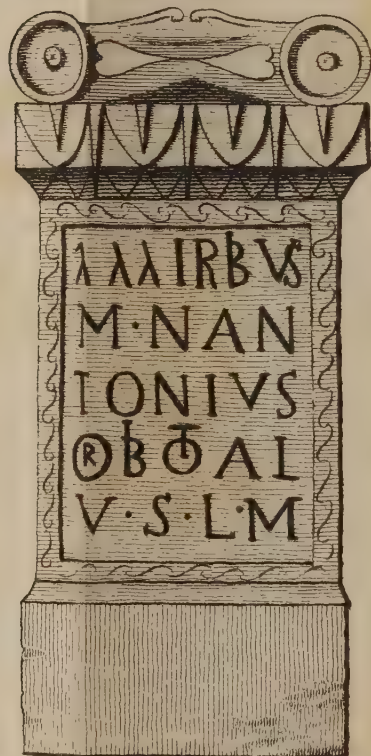 λλλIRBVS
M·NAN
TONIVS
ORBIOTAL
V·S·L·M